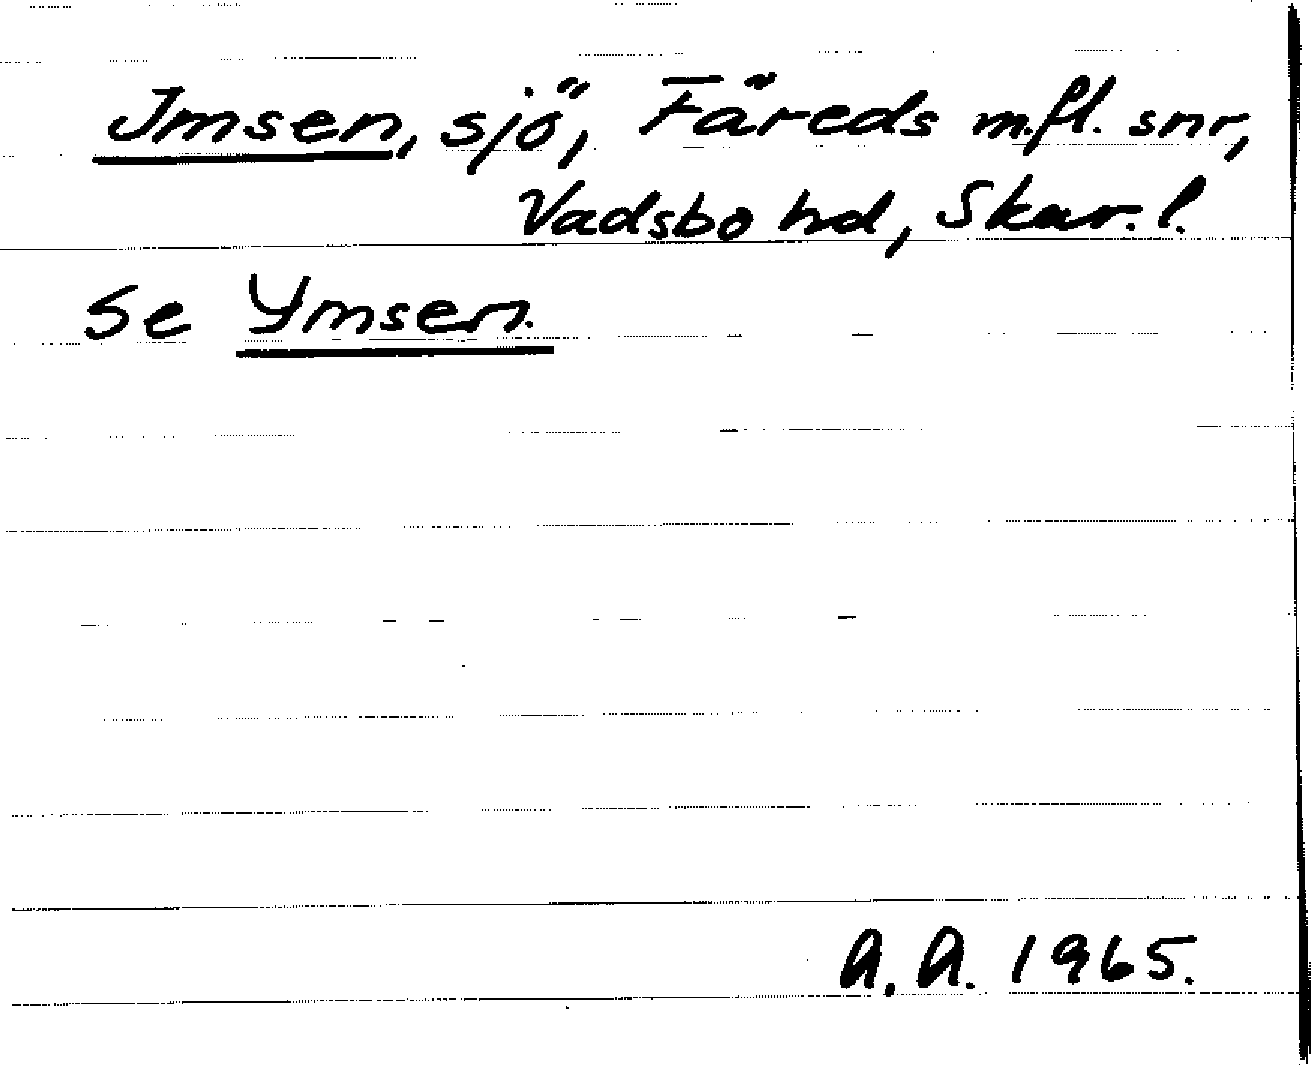 Imsen, sjö, Färeds m.fl. snr,
Vadsbo hd, Skar. l.
Se Ymsen.
A. A. 1965.